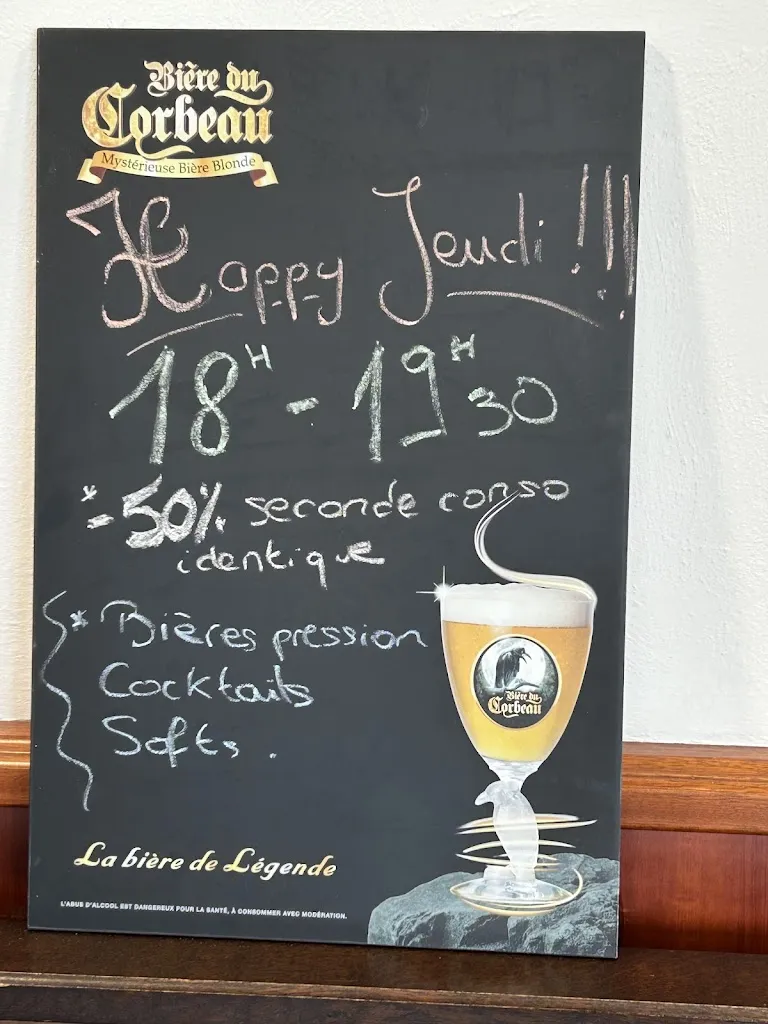 Bière du
Corbeau
Mystérieuse Bière Blonde
Happy Jeudi !!!
18H - 19H30
* -50% seconde conso
identique
* Bières pression
Cocktails
Softs.
Bière du
Corbeau
La bière de Légende
L'ABUS D'ALCOOL EST DANGEREUX POUR LA SANTÉ, À CONSOMMER AVEC MODÉRATION.